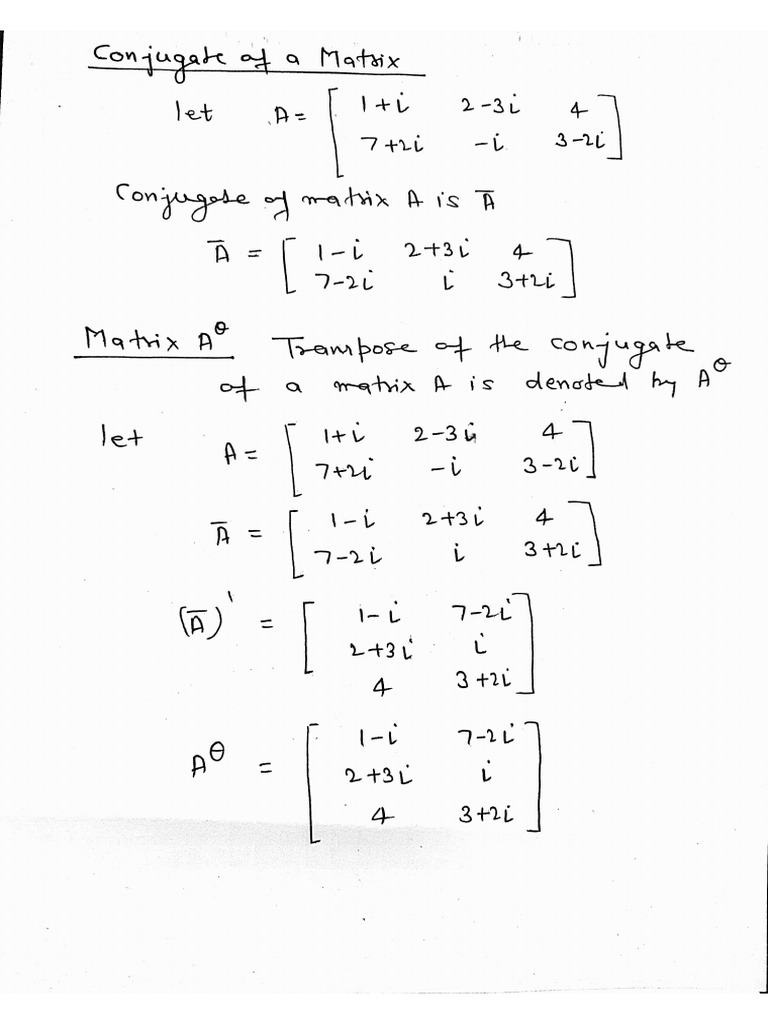 Conjugate of a Matrix
let A = [ 1+i 2-3i 4
7+2i -i 3-2i ]
Conjugate of matrix A is Ā
Ā = [ 1-i 2+3i 4
7-2i i 3+2i ]
Matrix A^θ Transpose of the conjugate
of a matrix A is denoted by A^θ
let A = [ 1+i 2-3i 4
7+2i -i 3-2i ]
Ā = [ 1-i 2+3i 4
7-2i i 3+2i ]
(Ā)' = [ 1-i 7-2i
2+3i i
4 3+2i ]
A^θ = [ 1-i 7-2i
2+3i i
4 3+2i ]